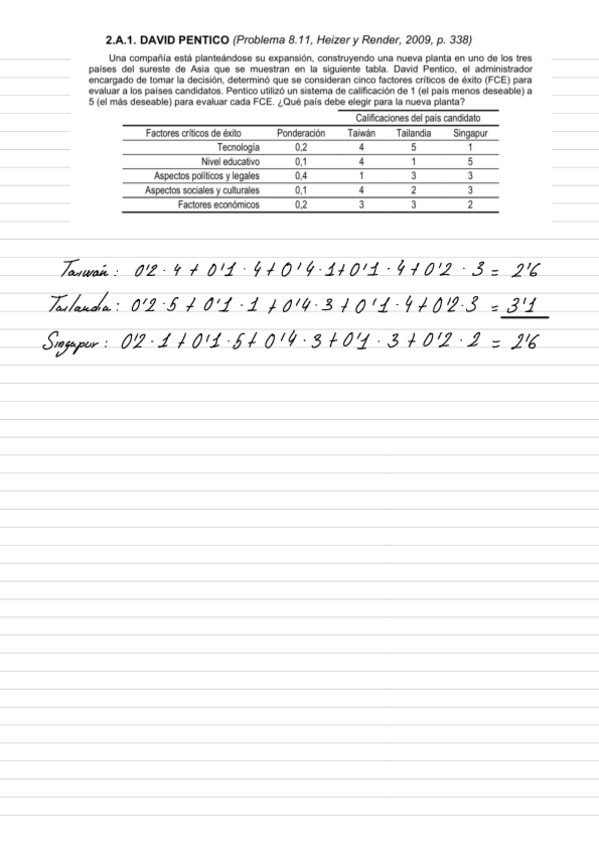 2.A.1. DAVID PENTICO (Problema 8.11, Heizer y Render, 2009, p. 338)
Una compañía está planteándose su expansión, construyendo una nueva planta en uno de los tres
países del sureste de Asia que se muestran en la siguiente tabla. David Pentico, el administrador
encargado de tomar la decisión, determinó que se consideran cinco factores críticos de éxito (FCE) para
evaluar a los países candidatos. Pentico utilizó un sistema de calificación de 1 (el país menos deseable) a
5 (el más deseable) para evaluar cada FCE. ¿Qué país debe elegir para la nueva planta?
Calificaciones del país candidato
Factores críticos de éxito Ponderación Taiwán Tailandia Singapur
Tecnología 0,2 4 5 1
Nivel educativo 0,1 4 1 5
Aspectos políticos y legales 0,4 1 3 3
Aspectos sociales y culturales 0,1 4 2 3
Factores económicos 0,2 3 3 2
Taiwán: 0'2 · 4 + 0'1 · 4 + 0'4 · 1 + 0'1 · 4 + 0'2 · 3 = 2'6
Tailandia: 0'2 · 5 + 0'1 · 1 + 0'4 · 3 + 0'1 · 4 + 0'2 · 3 = 3'1
Singapur: 0'2 · 1 + 0'1 · 5 + 0'4 · 3 + 0'1 · 3 + 0'2 · 2 = 2'6